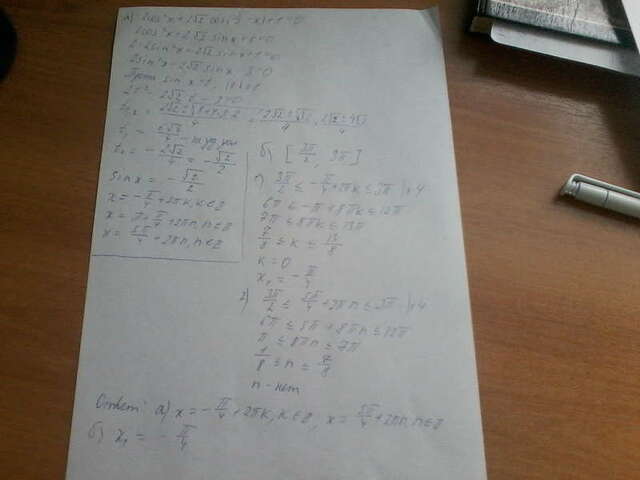 а) 2cos²x+2√2 cos(π/2 -x)+1=0
2cos²x+2√2 sinx+1=0
2-2sin²x+2√2 sinx+1=0
2sin²x-2√2 sinx-3=0
sinx=t, |t|≤1
2t²-2√2t-3=0
t₁ = 5√2/4
t₂ = -2√2/4 = -√2/2
sinx = -√2/2
x=-π/4+2πk, k∈Z
x=π+π/4+2πn, n∈Z
x=5π/4+2πn, n∈Z
б) [3π/2, 3π]
1) 3π/2 ≤ -π/4+2πk ≤ 3π |·4
6π ≤ -π+8πk ≤ 12π
7π ≤ 8πk ≤ 13π
7/8 ≤ k ≤ 13/8
k=0
x₁=-π/4
2) 3π/2 ≤ 5π/4+2πn ≤ 3π |·4
6π ≤ 5π+8πn ≤ 12π
π ≤ 8πn ≤ 7π
1/8 ≤ n ≤ 7/8
n-нет
Ответ: а) x=-π/4+2πk, k∈Z, x=5π/4+2πn, n∈Z
б) x₁=-π/4